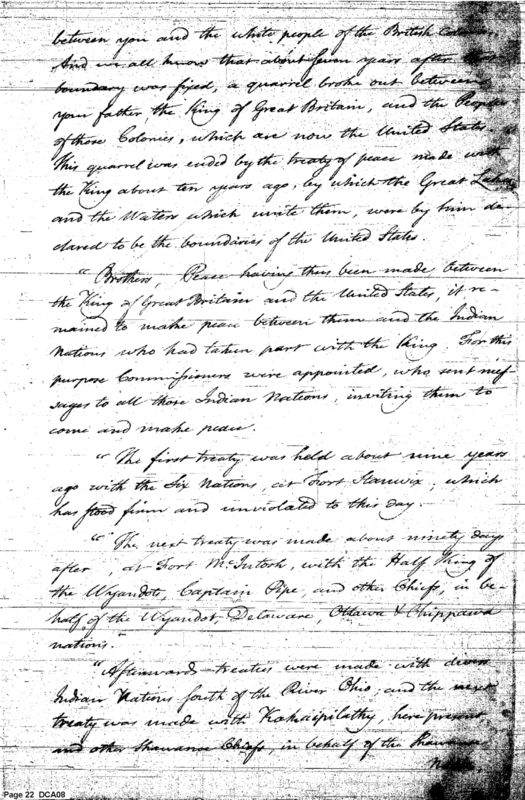 between you and the white people of the British Colonies.
And we all know that about seven years after that
boundary was fixed, a quarrel broke out between
your father, the King of Great Britain, and the People
of those Colonies, which are now the United States.
This quarrel was ended by the treaty of peace made with
the King about ten years ago, by which the Great Lakes,
and the Waters which unite them, were by him de-
clared to be the boundaries of the United States.
"Brothers, Peace having thus been made between
the King of Great Britain and the United States, it re-
mained to make peace between them and the Indian
Nations who had taken part with the King. For this
purpose Commissioners were appointed, who sent mes-
sages to all those Indian Nations, inviting them to
come and make peace.
"The first treaty was held about nine years
ago with the Six Nations, at Fort Stanwix, which
has stood firm and unviolated to this day.
"The next treaty was made about ninety days
after, at Fort McIntosh, with the Half King of
the Wyandots, Captain Pipe, and other Chiefs, in be-
half of the Wyandot, Delaware, Ottawa & Chippawa
nations.
"Afterwards treaties were made with divers
Indian Nations south of the River Ohio, and the next
treaty was made with Kakaipilathy, here present,
and other Shawanoe Chiefs, in behalf of the Shawanoe
Nation,
Page 22 DCA08